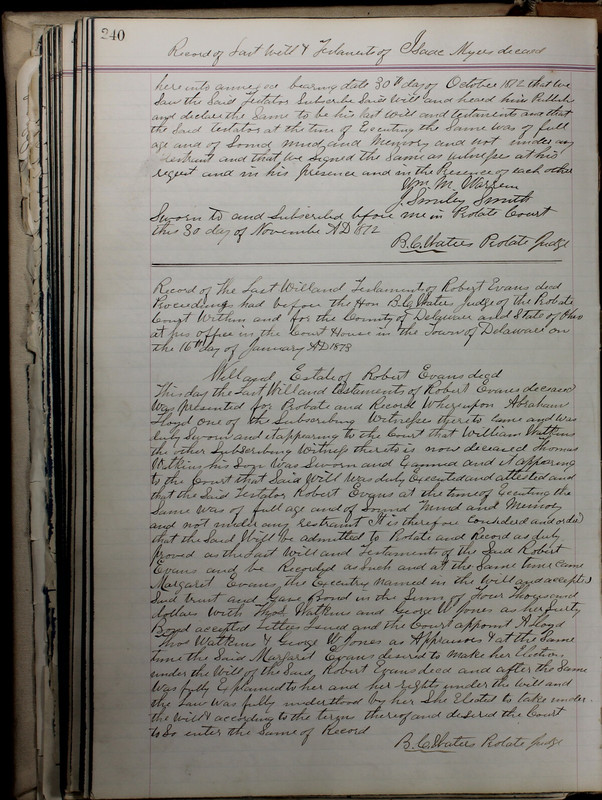 240
Record of Last Will & Testaments of Isaac Myers deceasd
here into annexed bearing date 30th day of October 1872 that we
Saw the Said Testator Subscribe Said Will and heard him Publish
and declare the Same to be his last Will and testaments and that
the Said testator at the time of Executing the Same was of full
age and of Sound mind and Memory and not under any
restraint and that we Signed the Same as witnesses at his
request and in his presence and in the Presence of each other
Wm M. Warren
J. Smiley Smith
Sworn to and Subscribed before me in Probate Court
this 30 day of November AD 1872
B. C. Waters Probate Judge
Record of The Last Will and Testament of Robert Evans decd
Proceedings had before the Hon B. C. Waters Judge of the Probate
Court Within and for the County of Delaware and State of Ohio
at his office in the Court House in the Town of Delaware on
the 16th day of January AD 1873
Will and Estate of Robert Evans decd
This day the Last Will and testaments of Robert Evans deceased
Was presented for Probate and Record Whereupon Abraham
Lloyd one of the Subscribing Witnesses thereto came and was
duly Sworn and it appearing to the Court that William Watkins
the other Subscribing Witness thereto is now deceased Thomas
Watkins his Son Was Sworn and Examined and it appearing
to the Court that Said Will Was duly Executed and attested and
that the Said Testator Robert Evans at the time of Executing the
Same was of full age and of Sound Mind and Memory
and not under any restraint It is therefore Considered and ordrd
that the Said Will be admitted to Probate and Record as duly
proved as the Last Will and Testament of the Said Robert
Evans and be Recorded as Such and at the Same time came
Margaret Evans, the Executrix named in the Will and accepted
Said trust and Gave Bond in the Sum of Four Thousand
dollars With Thos Watkins and George W Jones as her Surety
Bond accepted Letters Issued and the Court appoint A Lloyd
Thos Watkins & George W Jones as Appraisors & at the Same
time the Said Margaret Evans desired to Make her Election
under the Will of the Said Robert Evans decd and after the Same
Was fully Explained to her and her rights under the Will and
the Law Was fully understood by her She Elected to take under
the Will & according to the terms thereof and desired the Court
to So enter the Same of Record
B. C. Waters Probate Judge